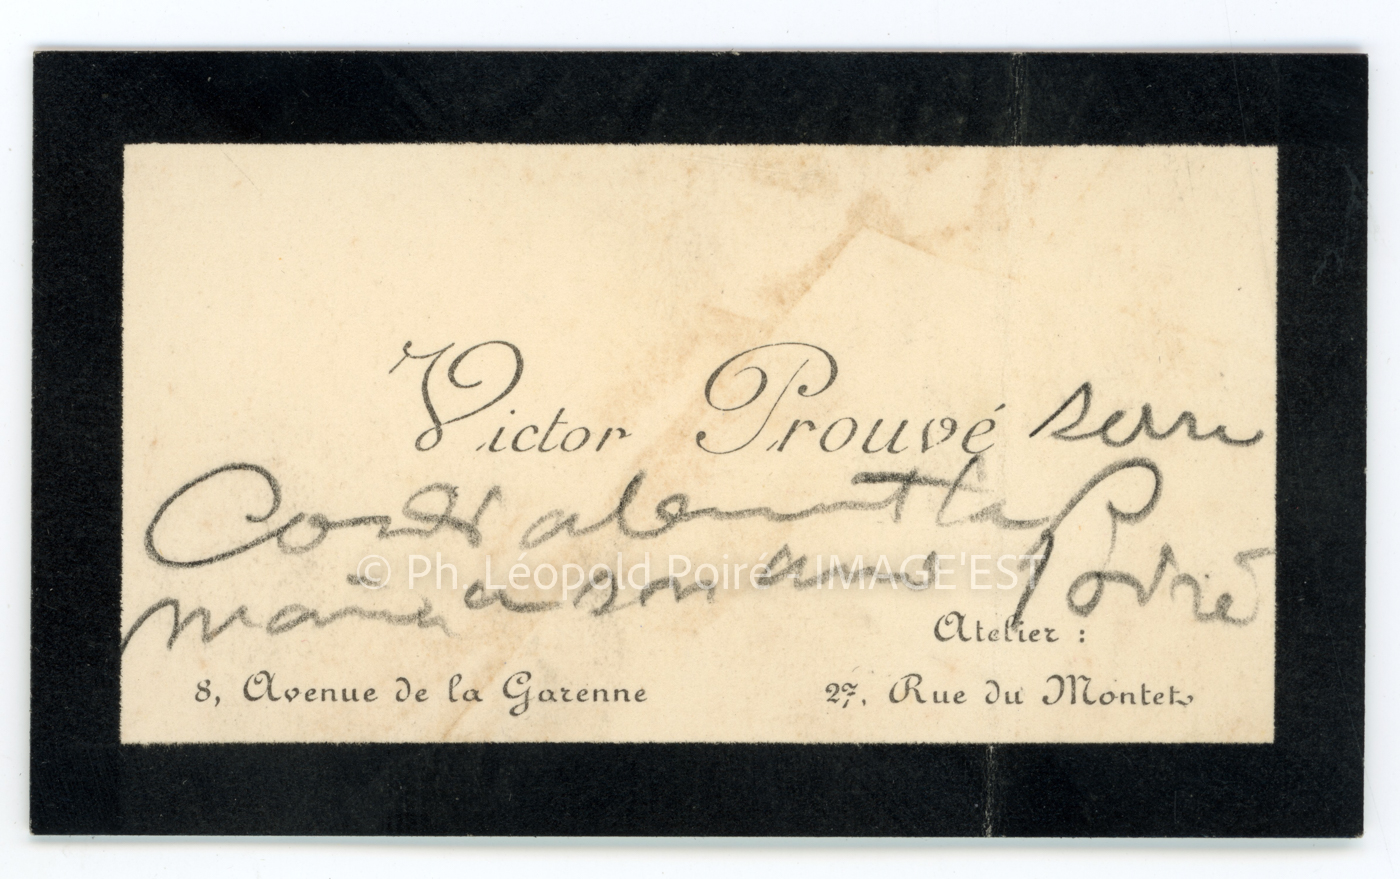 Victor Prouvé serre
Cordialement la
main à son ami Poiré
© Ph. Léopold Poiré IMAGE'EST
Atelier :
8, Avenue de la Garenne
27, Rue du Montet